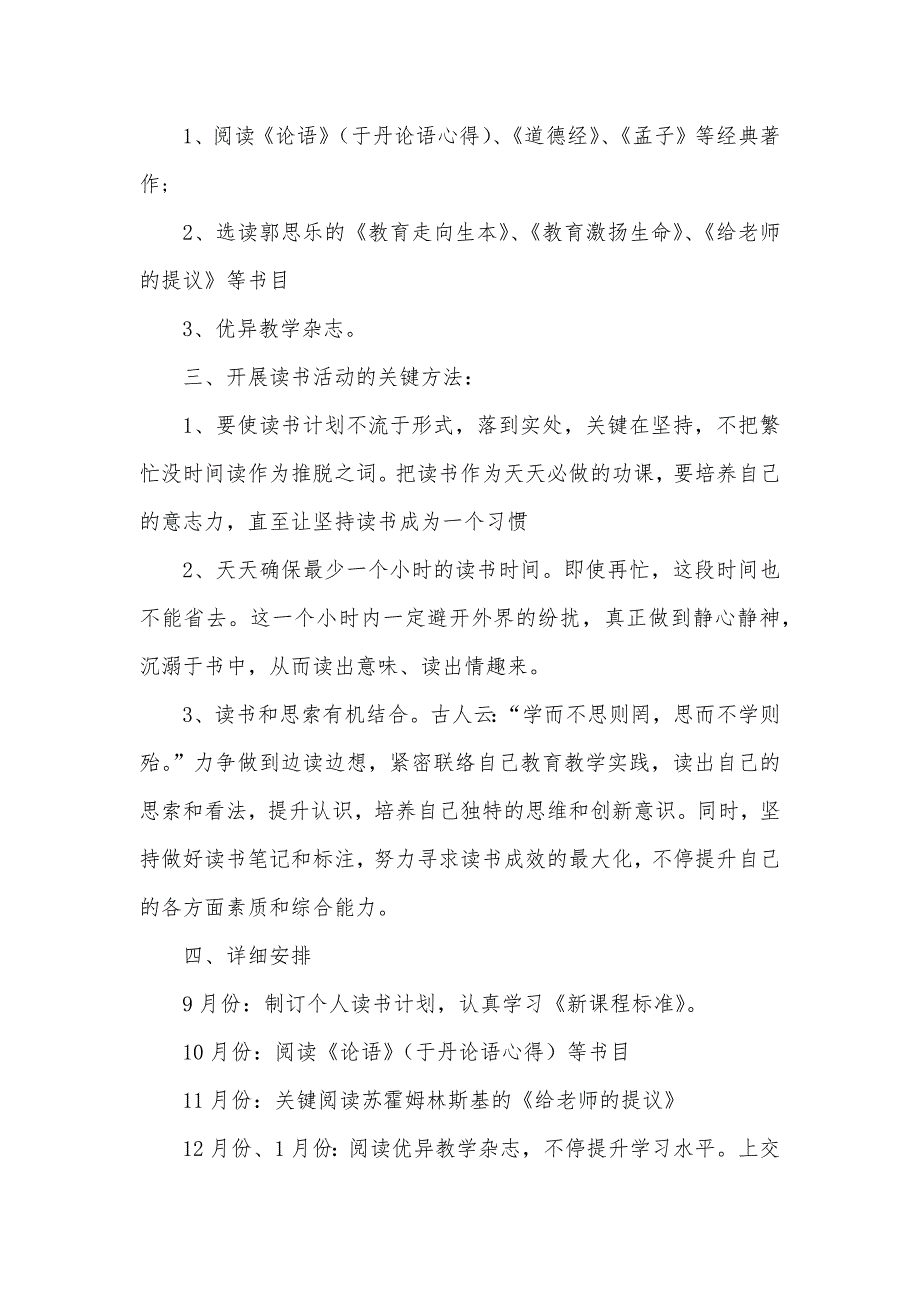 1、阅读《论语》（于丹论语心得）、《道德经》、《孟子》等经典著
作;
2、选读郭思乐的《教育走向生本》、《教育激扬生命》、《给老师
的提议》等书目
3、优异教学杂志。
三、开展读书活动的关键方法：
1、要使读书计划不流于形式，落到实处，关键在坚持，不把繁
忙没时间读作为推脱之词。把读书作为天天必做的功课，要培养自己
的意志力，直至让坚持读书成为一个习惯
2、天天确保最少一个小时的读书时间。即使再忙，这段时间也
不能省去。这一个小时内一定避开外界的纷扰，真正做到静心静神，
沉溺于书中，从而读出意味、读出情趣来。
3、读书和思索有机结合。古人云：“学而不思则罔，思而不学则
殆。”力争做到边读边想，紧密联络自己教育教学实践，读出自己的
思索和看法，提升认识，培养自己独特的思维和创新意识。同时，坚
持做好读书笔记和标注，努力寻求读书成效的最大化，不停提升自己
的各方面素质和综合能力。
四、详细安排
9月份：制订个人读书计划，认真学习《新课程标准》。
10月份：阅读《论语》（于丹论语心得）等书目
11月份：关键阅读苏霍姆林斯基的《给老师的提议》
12月份、1月份：阅读优异教学杂志，不停提升学习水平。上交